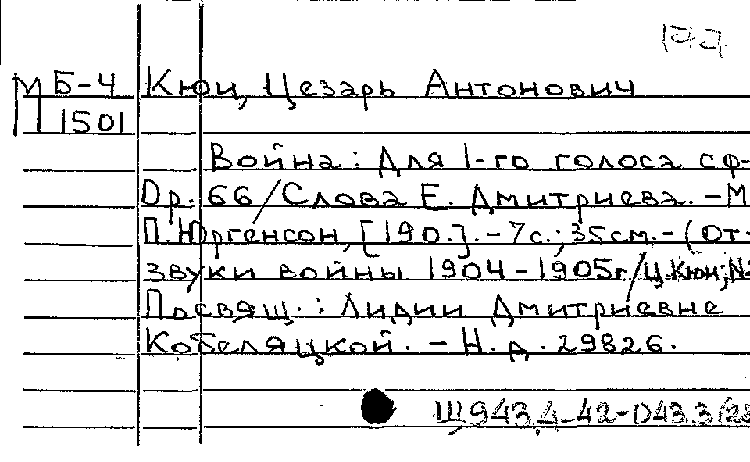 М Б-4 Кюи, Цезарь Антонович
1501
Война: Для 1-го голоса с ф-
Op. 66/Слова Е. Дмитриева. - М
П. Юргенсон, [190.]. - 7с.; 35см. - (От-
звуки войны 1904-1905г/Ц. Кюи; №
Посвящ.: Лидии Дмитриевне
Кобеляцкой. - Н.д. 29826.
Щ943.4-42-D43.3/2